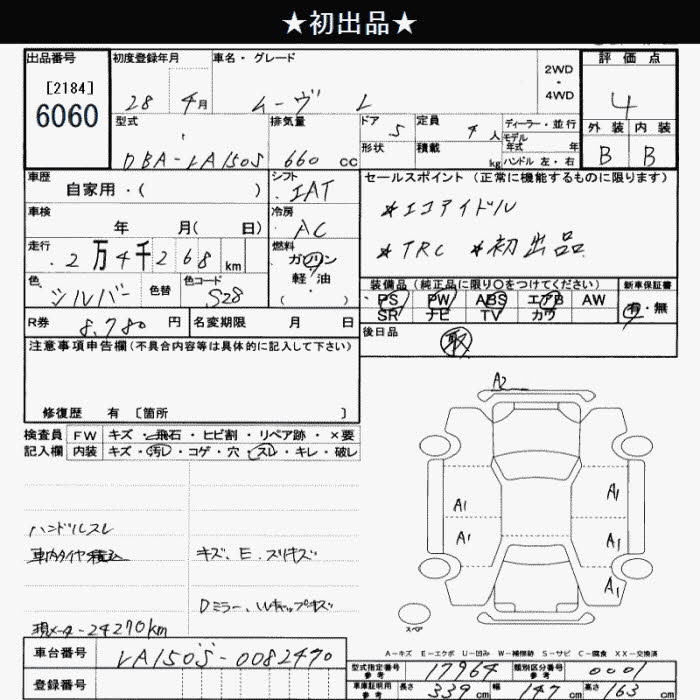 ★初出品★
出品番号 初度登録年月 車名・グレード 2WD・4WD 評価点
[2184]
6060
28 4月 ムーヴ L 4
型式 排気量 ドア 5 定員 4人 ディーラー・並行 外装 内装
DBA-LA150S 660 cc 形状 積載 kg モデル年式 年 ハンドル左・右 B B
車歴 自家用・( ) シフト IAT セールスポイント (正常に機能するものに限ります)
車検 年 月( 日) 冷房 AC ★エコアイドル
走行 2万4千268km 燃料 ガソリン 軽・油 ( ) ★TRC ★初出品
色 シルバー 色替 色コード S28 装備品 (純正品に限り○をつけてください) 新車保証書
PS PW ABS エアB AW 有・無
SR ナビ TV カワ
R券 8,780円 名変期限 月 日 後日品 取
注意事項申告欄 (不具合内容等は具体的に記入して下さい)
修復歴 有 [箇所 ]
A2
検査員 FW キズ・飛石・ヒビ割・リペア跡・×要
記入欄 内装 キズ・汚レ・コゲ・穴・スレ・キレ・破レ
A1 A1
A1 A1
A1
ハンドルスレ
車内タイヤ積込 キズ、E、スリキズ
Dミラー、Wキャップキズ
現メーター24270km
スペア
A-キズ E-エクボ U-凹み W-補修跡 S-サビ C-腐食 XX-交換済
車台番号 LA150S-0082470 型式指定番号 参考 17964 類別区分番号 参考 0001
登録番号 車庫証明用 参考 長さ 339cm 幅 147cm 高さ 163cm